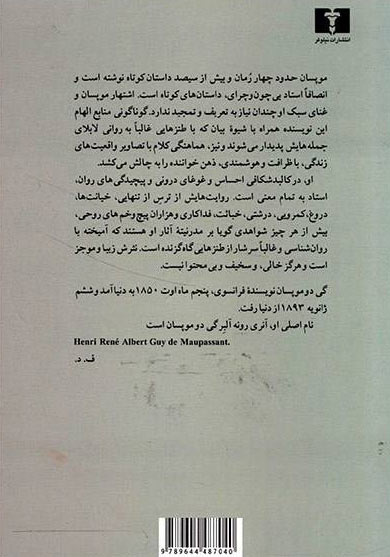 انتشارات نیلوفر
موپسان حدود چهار رُمان و بیش از سیصد داستان کوتاه نوشته است و
انصافاً استاد بی‌چون‌وچرای، داستان‌های کوتاه است. اشتهار موپسان و
غنای سبک او چندان نیاز به تعریف و تمجید ندارد. گوناگونی منابع الهام
این نویسنده همراه با شیوهٔ بیان که با طنزهایی غالباً به روانی لابلای
جمله‌هایش پدیدار می‌شوند و نیز، هماهنگی کلام با تصاویر واقعیت‌های
زندگی، با ظرافت و هوشمندی، ذهن خواننده را به چالش می‌کشد.
او، در کالبدشکافی احساس و غوغای درونی و پیچیدگی‌های روان،
استاد به تمام معنی است. روایت‌هایش از ترس از تنهایی، خیانت‌ها،
دروغ، کمرویی، درشتی، خباثت، فداکاری و هزاران پیچ‌وخم‌های روحی،
بیش از هر چیز شواهدی گویا بر مدرنیتهٔ آثار او هستند که آمیخته با
روان‌شناسی و غالباً سرشار از طنزهایی گاه گزنده است. نثرش زیبا و موجز
است و هرگز خالی، و سخیف و بی‌محتوا نیست.
گی دو موپسان نویسندهٔ فرانسوی، پنجم ماه اوت ۱۸۵۰ به دنیا آمد و ششم
ژانویه ۱۸۹۳ از دنیا رفت.
نام اصلی او، آنری رونه آلبر گی دو موپسان است
Henri René Albert Guy de Maupassant.
ف. د.
9 789644 487040